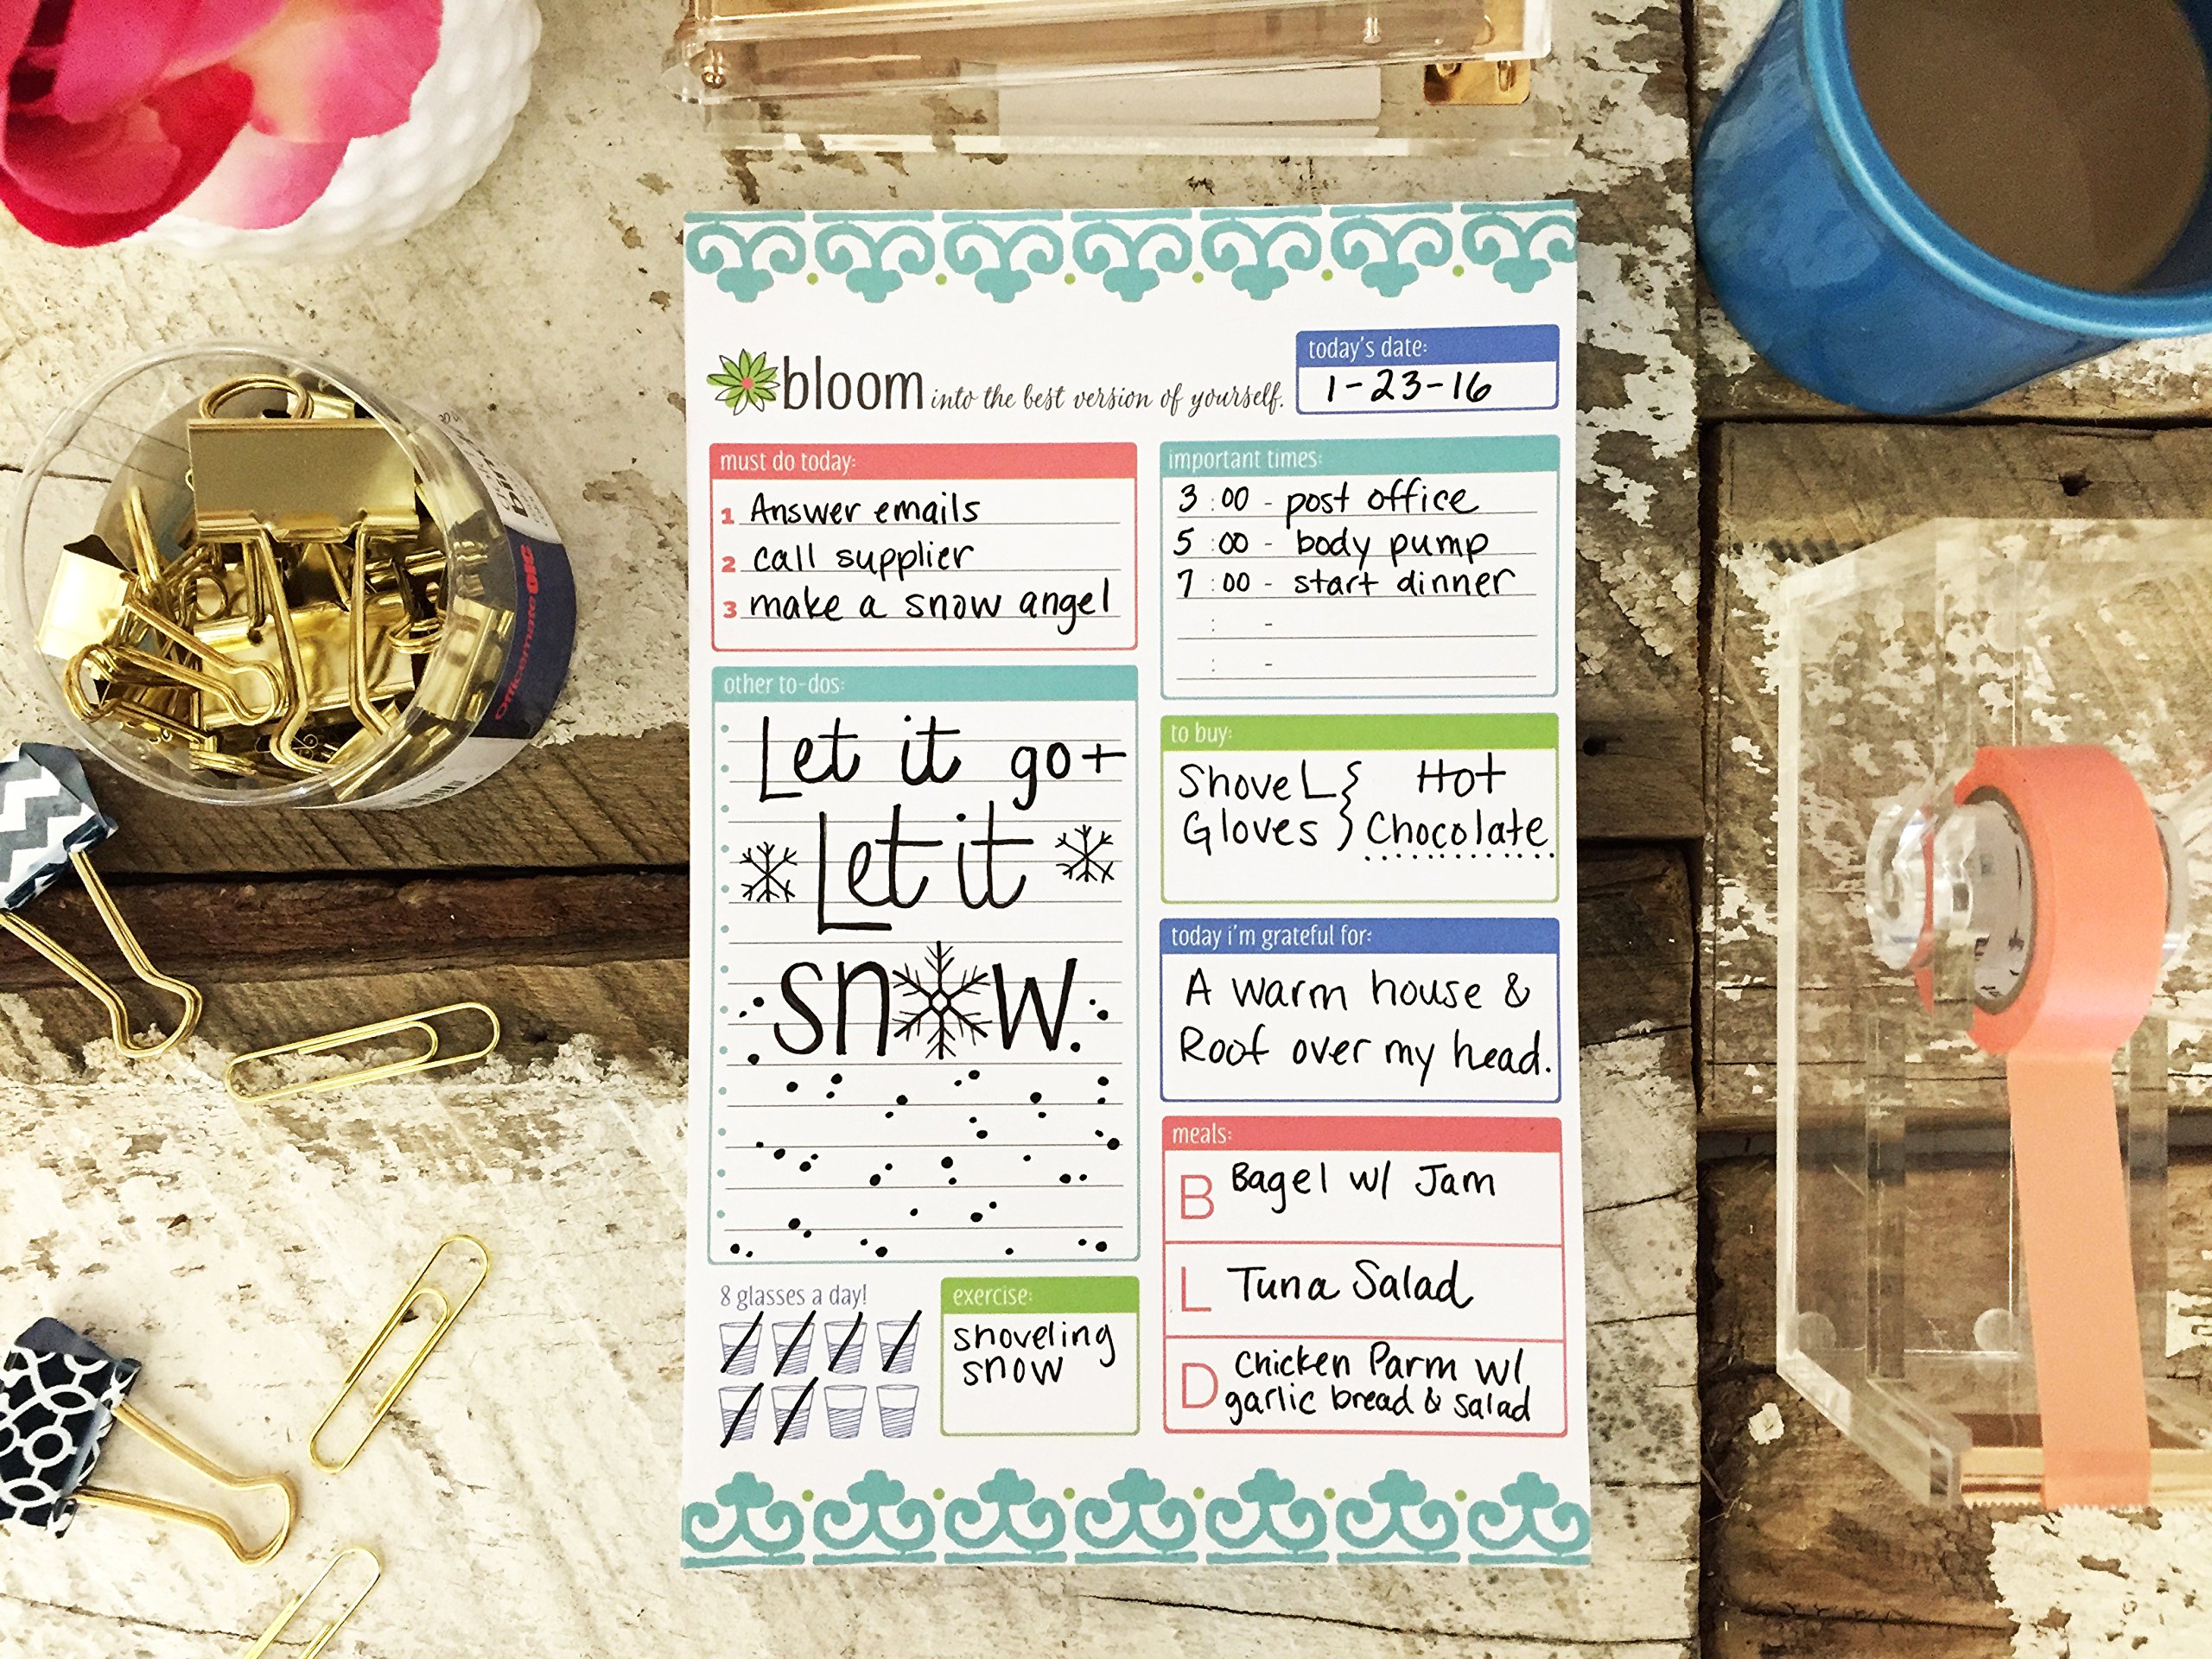 bloom into the best version of yourself.
today's date:
1-23-16
must do today:
1 Answer emails
2 call supplier
3 make a snow angel
important times:
3:00 - post office
5:00 - body pump
7:00 - start dinner
: -
: -
other to-dos:
Let it go +
Let it
snow.
to buy:
Shovel } Hot
Gloves } Chocolate
today i'm grateful for:
A warm house &
Roof over my head.
meals:
B Bagel w/ Jam
L Tuna Salad
D Chicken Parm w/
garlic bread & salad
8 glasses a day!
exercise:
shoveling
snow
OfficemateOIC